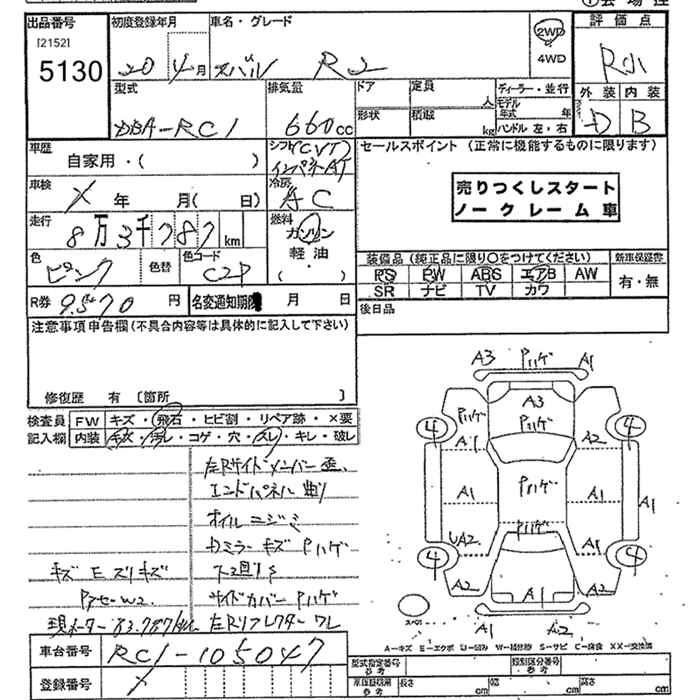 出品番号 初度登録年月 車名・グレード 2WD 4WD 評価点
[2152]
5130
20 4月 スバル R2 R小
型式 排気量 ドア 定員 人 ディーラー・並行 外装 内装
DBA-RC1 660cc 形状 積載 kg モデル年式 年 ハンドル 左・右 D B
車歴 自家用・( ) シフト CVT インパネAT
セールスポイント (正常に機能するものに限ります)
車検 X 年 月( 日) 冷房 AC
売りつくしスタート
ノークレーム車
走行 8万3千787km 燃料 ガソリン 軽油・( )
色 ピンク 色替 色コード C2P
装備品 (純正品に限り○をつけてください) 新車保証書
PS PW ABS エアB AW 有・無
SR ナビ TV カワ
R券 9,570円 名変通知期限 月 日
後日品
注意事項申告欄(不具合内容等は具体的に記入して下さい)
修復歴 有 [箇所 ]
検査員 FW キズ・飛石・ヒビ割・リペア跡・×要
記入欄 内装 キズ・汚レ・コゲ・穴・スレ・キレ・破レ
左Rサイドメンバー歪
エンドパネル曲り
オイルニジミ
カミラーキズ Pハゲ
キズ E ズリキズ 下廻りS
PアセW2 サイドカバーPハゲ
現メーター83.787km 左Rリフレクターワレ
A3 Pハゲ A1
A3
Pハゲ Pハゲ
4 4
A1 A2
A1 Pハゲ A1 A1
Pハゲ
UA2 A1
4 4
A2 A1 A2
スペア
A1 A2
A-キズ E-エクボ U-凹み W-補修跡 S-サビ C-腐食 XX-交換済
車台番号 RC1-105047
登録番号 X
型式指定番号 参考 類別区分番号 参考
車体寸法 参考 長さ cm 幅 cm 高さ cm